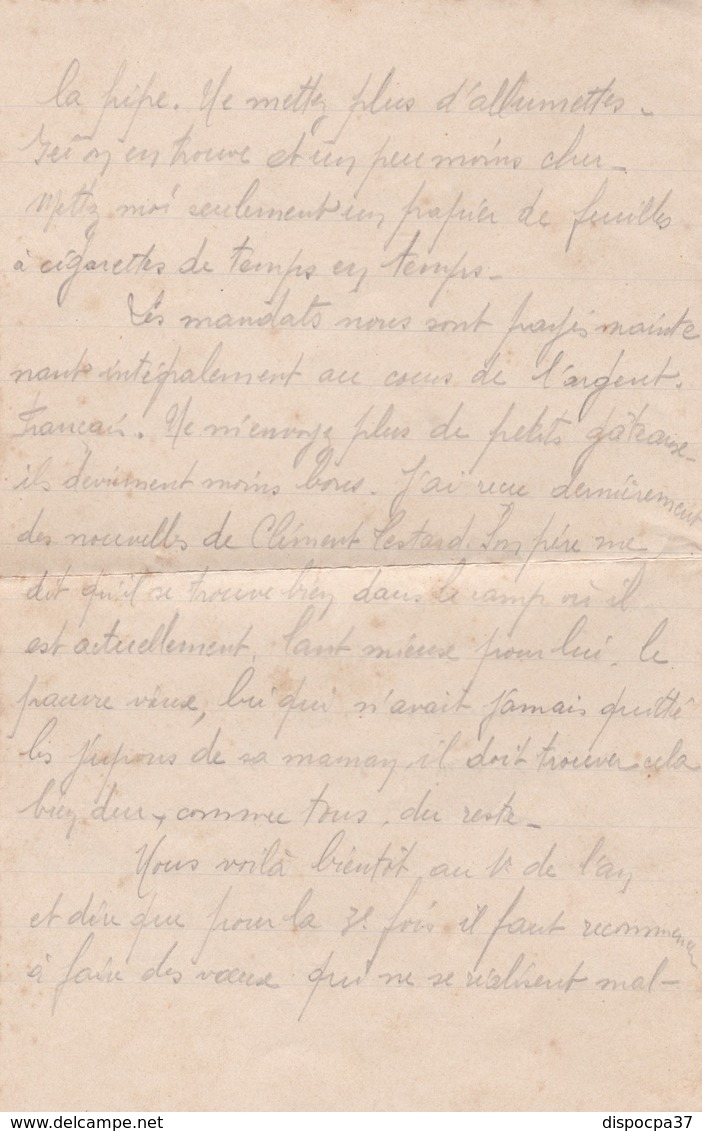 la pipe. Ne mettez plus d'allumettes.
Ici on en trouve et un peu moins cher.
Mettez moi seulement un papier de feuilles
à cigarettes de temps en temps.
Les mandats nous sont payés mainte
nant intégralement au cours de l'argent
Français. Ne m'envoye plus de petits gâteaux
ils deviennent moins bons. J'ai reçu dernièrement
des nouvelles de Clément Testard. Son père me
dit qu'il se trouve bien dans le camp où il
est actuellement. Tant mieux pour lui. le
pauvre vieux, lui qui n'avait jamais quitté
les jupons de sa maman, il doit trouver cela
bien dur, comme tous, du reste.
Nous voilà bientôt au 1er de l'an
et dire que pour la 3e fois il faut recommencer
à faire des vœux qui ne se réalisent mal-
dispocpa37